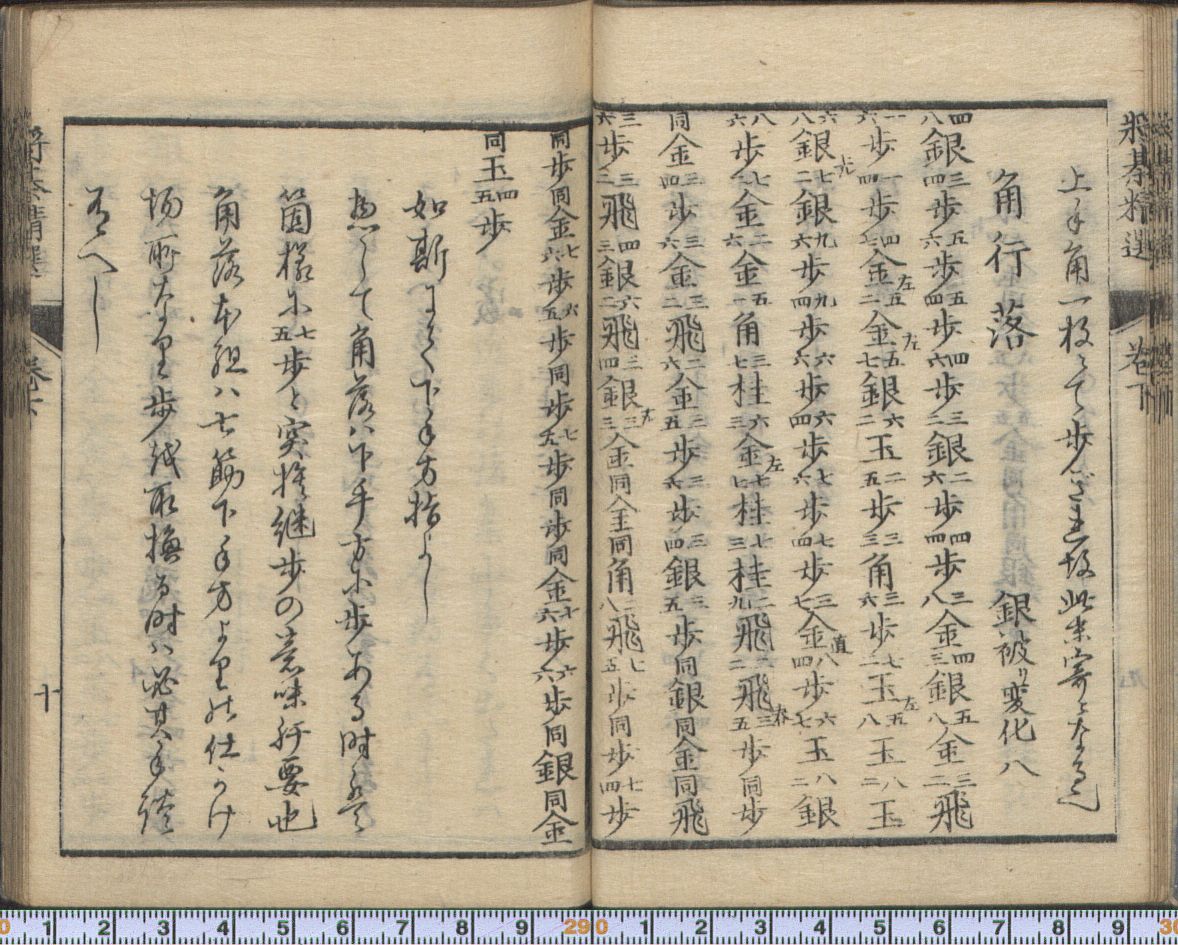 将棊精選 巻下
上手角一枚にて歩んざれ故此末寄となる也
角行落 銀破り変化八
四八銀 三四歩 五六歩 五四歩 四六歩 三二銀 二六歩 四四歩 三八金 四三銀 五八金 三二飛
一六歩 一四歩 四七金左 五二金左 五七銀 六二玉 二五歩 三三角 三六歩 七二玉 五八玉左 八二玉
六八銀 七二銀 九六歩 九四歩 六六歩 六四歩 七六歩 七四歩 三七金直 八四歩 六七玉 八二銀
八六歩 七二金 二六金 五四角 三七桂 六三金左 七七桂 七三桂 二九飛 六二飛 三五歩 同歩
同金 三四歩 三六金 三二飛 二六金 二五歩 三六歩 三四銀 三五歩 同銀 同金 同飛
三六歩 三三飛 四三銀 六二飛 三四銀 三三金 同金 同角 二八飛 七五歩 同歩 七四歩
同歩 同金 七六歩 六五歩 同歩 七九歩 同歩 同金 七六歩 六六歩 同銀 同金
同玉 四五歩
如斯にて下手方指よし
惣して角落ハ下手方に歩ある時ハ是
箇様に七五歩と突捨継歩の意味肝要也
角落本組ハ七筋下手方より仕かけ
場所なり歩を取換る時ハ必其手読
有へし
巻下
十